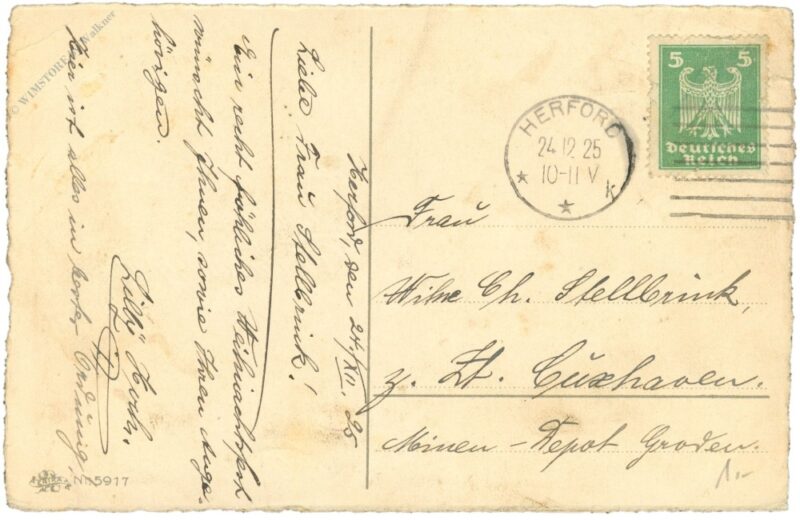 Herford, den 24./XII. 25
Liebe Frau Stellbrink!
Ein recht fröhliches Weihnachtsfest
wünscht Ihnen, sowie Ihren Ange-
hörigen.
Lilly
Hier ist alles in bester Ordnung
HERFORD
24.12.25
10-11 V
k
5 5
Deutsches
Reich
Frau
Wwe Ch. Stellbrink,
z. Zt. Cuxhaven.
Minen-Depot Groden.
1.-
No 5917
© WIMSTORE Walkner